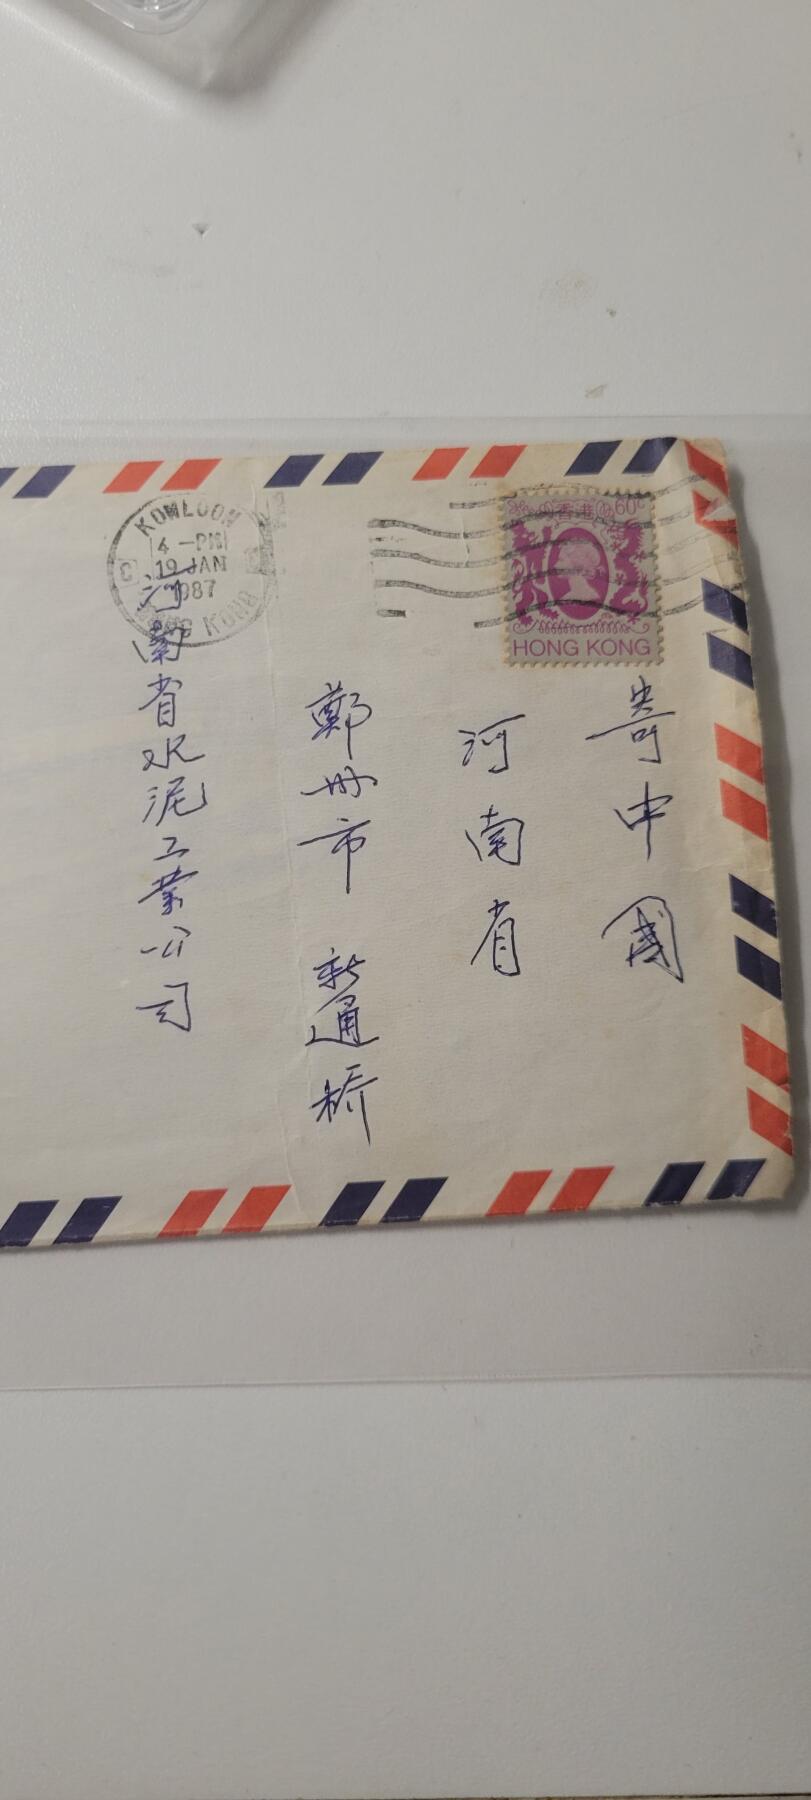 KOWLOON
4 -PM
19 JAN
1987
HONG KONG
香港 60c
HONG KONG
寄中國
河南省
鄭州市 新通橋
河南省水泥工業公司